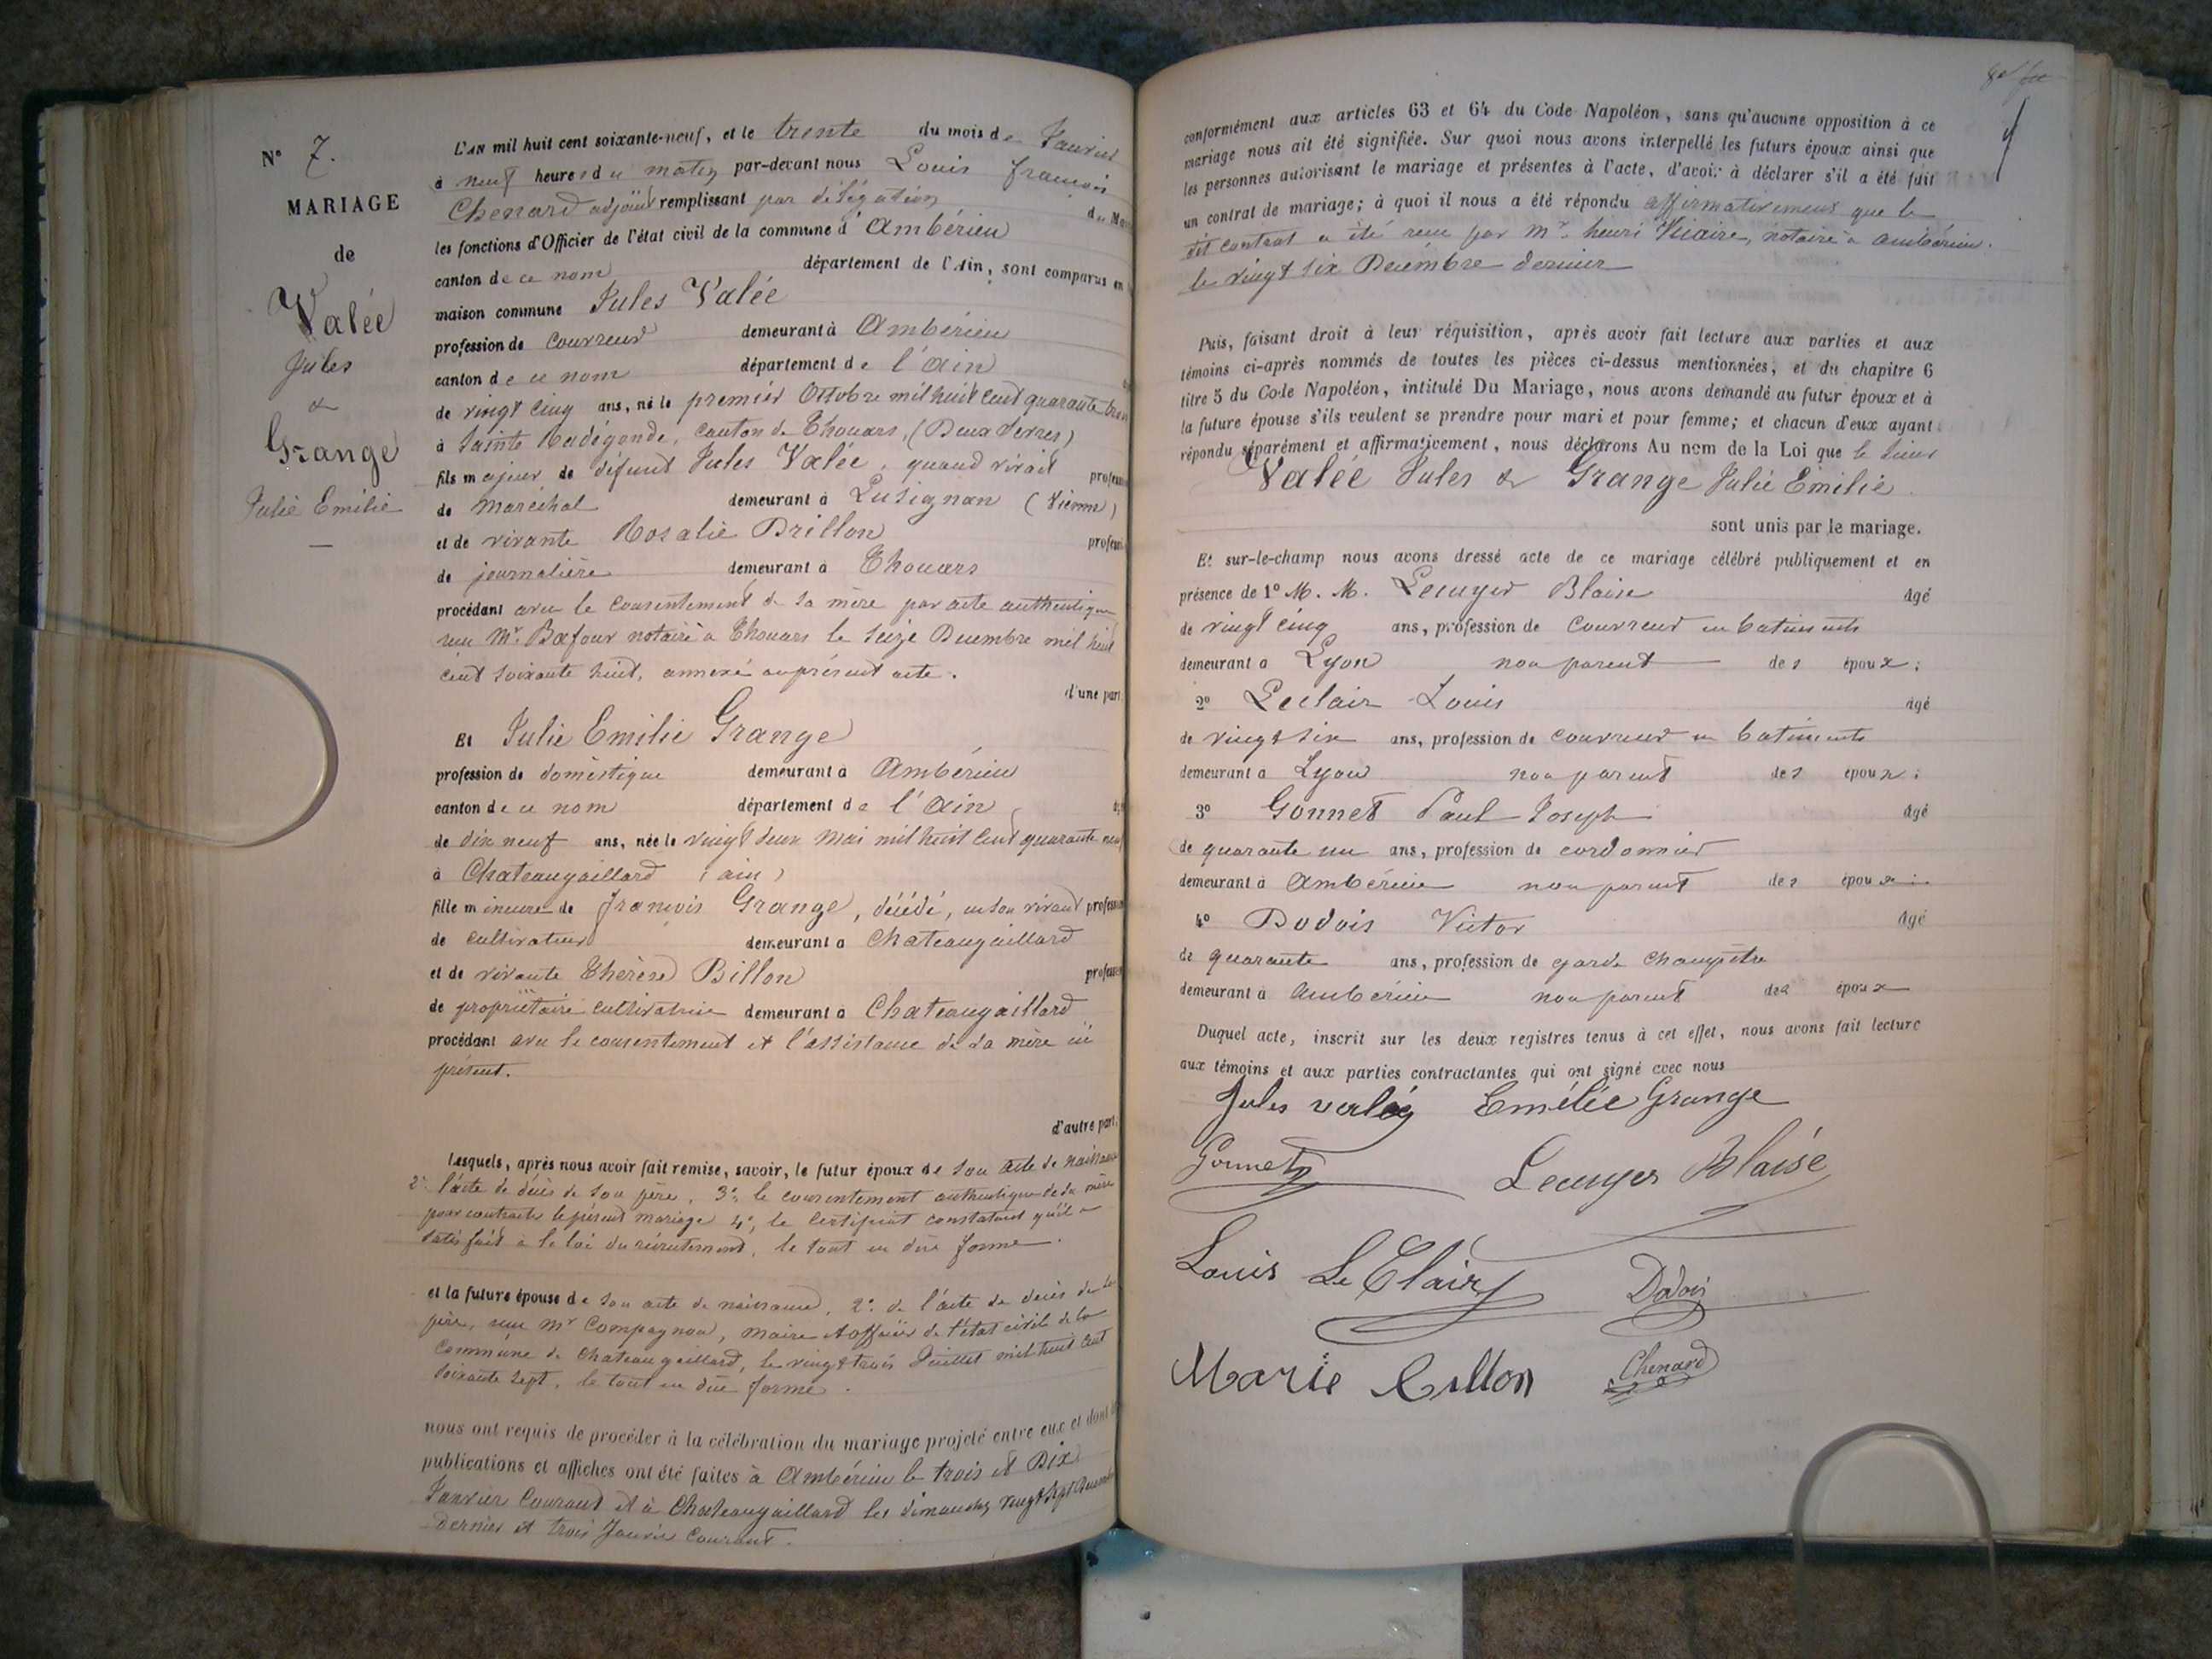 N° 7.
MARIAGE
de
Valée
Jules
&
Grange
Julie Emilie
L'AN mil huit cent soixante-neuf, et le trente du mois de Janvier
à neuf heures du matin par-devant nous Louis françois
Chenard adjoint remplissant par délégation du
les fonctions d'Officier de l'état civil de la commune d'Ambérieu
canton de ce nom département de l'Ain, sont comparus en
maison commune Jules Valée
profession de Couvreur demeurant à Ambérieu
canton de ce nom département de l'Ain
de vingt cinq ans, né le premier Octobre mil huit cent quarante trois
à Sainte Radégonde, canton de Thouars, (Deux Sevres)
fils majeur de défunt Jules Valée, quand vivait profession
de Maréchal demeurant à Lusignan (Vienne)
et de vivante Rosalie Drillon profession
de journalière demeurant à Thouars
procédant avec le consentement de sa mère par acte authentique
reçu Mr. notaire à Thouars le seize Décembre mil huit
cent soixante huit, annexé au présent acte.
d'une part.
Et Julie Emilie Grange
profession de domestique demeurant à Ambérieu
canton de ce nom département de l'Ain
de dix neuf ans, née le vingt deux Mai mil huit cent quarante neuf
à Chateaugaillard (ain)
fille mineure de François Grange, décédé, en son vivant profession
de cultivateur demeurant à Chateaugaillard
et de vivante Thérèse Billon profession
de propriétaire cultivatrice demeurant à Chateaugaillard
procédant avec le consentement et l'assistance de sa mère ici
présent.
d'autre part.
Lesquels, après nous avoir fait remise, savoir, le futur époux de son acte de naissance
2° l'acte de décès de son père, 3°, le consentement authentique de sa mère
pour contracter le présent mariage 4°, le certificat constatant qu'il a
satisfait à la loi du recrutement, le tout en due forme.
et la future épouse de son acte de naissance, 2° de l'acte de décès de son
père, reçu Mr Compagnon, maire et officier de l'état civil de la
Commune de Chateaugaillard, le vingt trois Juillet mil huit cent
soixante sept, le tout en due forme.
nous ont requis de procéder à la célébration du mariage projeté entre eux et dont les
publications et affiches ont été faites à Ambérieu le trois et Dix
Janvier Courant et à Chateaugaillard les dimanches vingt sept Décembre
dernier et trois Janvier Courant.
conformément aux articles 63 et 64 du Code Napoléon, sans qu'aucune opposition à ce
mariage nous ait été signifiée. Sur quoi nous avons interpellé les futurs époux ainsi que
les personnes autorisant le mariage et présentes à l'acte, d'avoir à déclarer s'il a été fait
un contrat de mariage; à quoi il nous a été répondu affirmativement que le
dit contrat a été reçu par Mr. henri notaire à Ambérieu.
le vingt six Décembre dernier
Puis, faisant droit à leur réquisition, après avoir fait lecture aux parties et aux
témoins ci-après nommés de toutes les pièces ci-dessus mentionnées, et du chapitre 6
titre 5 du Code Napoléon, intitulé Du Mariage, nous avons demandé au futur époux et à
la future épouse s'ils veulent se prendre pour mari et pour femme; et chacun d'eux ayant
répondu séparément et affirmativement, nous déclarons Au nom de la Loi que le sieur
Valée Jules & Grange Julie Emilie
sont unis par le mariage.
Et sur-le-champ nous avons dressé acte de ce mariage célébré publiquement et en
présence de 1° M. M. Lecuyer Blaise âgé
de vingt cinq ans, profession de Couvreur en batiments
demeurant à Lyon non parent des époux;
2° Leclair Louis âgé
de vingt six ans, profession de couvreur en batiments
demeurant à Lyon non parent des époux;
3° Gonnet Paul Joseph âgé
de quarante un ans, profession de cordonnier
demeurant à Ambérieu non parent des époux;
4° Dodois Victor âgé
de quarante ans, profession de garde Champêtre
demeurant à Ambérieu non parent des époux
Duquel acte, inscrit sur les deux registres tenus à cet effet, nous avons fait lecture
aux témoins et aux parties contractantes qui ont signé avec nous
Jules valéé Emélie Grange
Gonnet Lecuyer Blaise
Louis Le Clair Dodois
Marie Billon Chenard